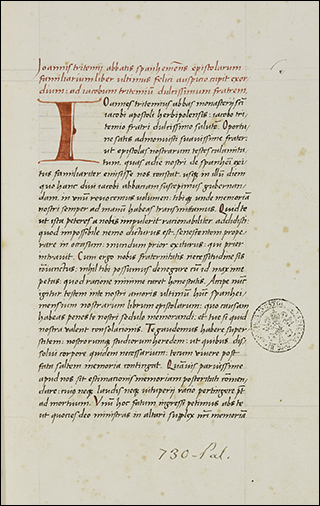 Joannis tritemij abbatis spanhemensis epistolarum
familiarium liber ultimus felici auspicio cupit exor
dium: ad iacobum tritemiũ dulcissimum fratrem.
IOannes tritemius abbas monasterij sci
iacobi apostoli herbipolensis: iacobo tri
temio fratri dulcissimo salutẽ. Oportu
ne satis admonuisti suavissime frater
ut epistolas nostrarum testes calamita
tum, quas a die nostri de spanheim exi
tus familiariter emisisse nos constat, usque in illũ diem
quo hanc divi iacobi abbaciam suscepimus gubernan
dam, in unũ revocemus volumen: tibique unde memoria
nostri semper ad manũ habeas transmittamus. Quid ne
ut ista petere a nobis impuleris racionabiliter, addidisti:
quod impossibile nemo dicturus est, senescentem prope
rare in occasum: mundum prior exiturus, qui prior
intravit. Cum ergo nobis fraternitatis necessitudine sis
coniunctus, nihil tibi possumus denegare cũ id maxime
petas, quod racione minime caret honestatis. Accipe nunc
igitur testem inter nostri amoris ultimum hunc spanhei
mensium nostrarum librum epistolarum: quo causam
habeas penes te nostri sedulo memorandi, et tue si quid
nostra valent consolacionis. Te gaudemus habere super
stitem: nostrorumque studiorum heredem: ut quibus dis
solui corpore quidem necessarium: totum vivere post
fata saltem memoria contingat. Quamvis parvissime
apud nos sit estimacionis memoriam posteritati commen
dare: cum neque laudis neque vituperij racio pertingere possit
ad mortuum. Unum hoc fatum ingressi potimus abs te
ut quocies deo ministras in altari supplex nostri memoriam
730-Pal.